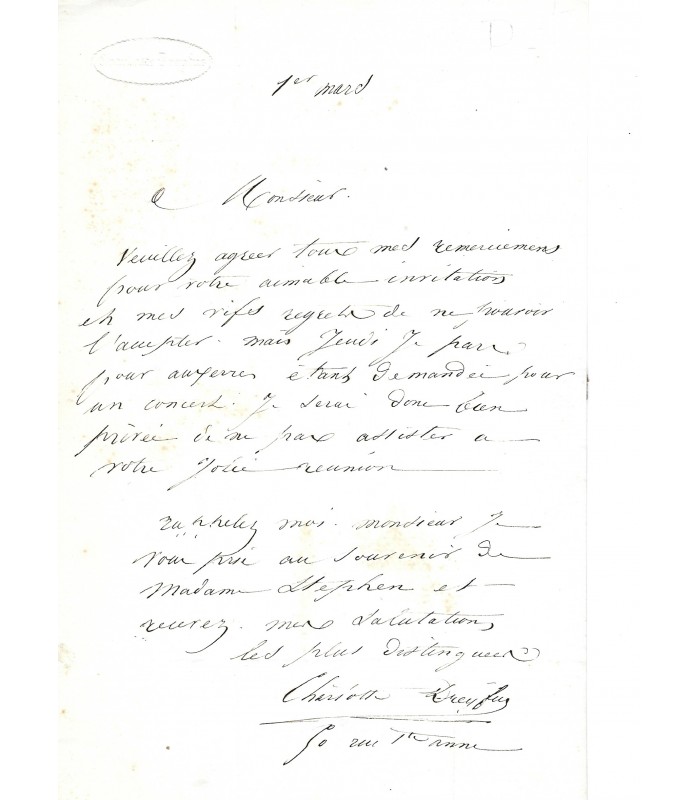 1er mars
Monsieur.
Veuillez agreer tous mes remerciemens
pour votre aimable invitation
et mes vifs regrets de ne pouvoir
l'accepter. mais Jeudi Je pars
pour auxerre étant Demandée pour
un concert. Je serai donc bien
privée de ne pas assister a
votre Jolie reunion
rappelez moi. monsieur Je
vous prie au souvenir de
Madame Stephen et
recevez. mes salutations
les plus distinguées
Charlotte Dreyfus
50 rue Ste anne